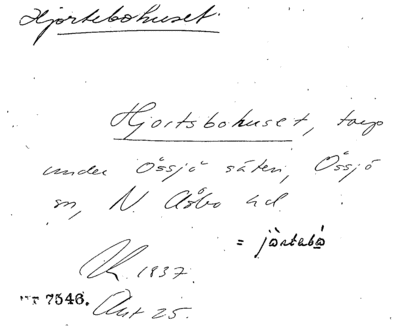 Hjortebohuset.
Hjortsbohuset, torp
under Össjö säteri, Össjö
sn, N. Åsbo hd.
= jòrtabò
1937.
7546.
25.